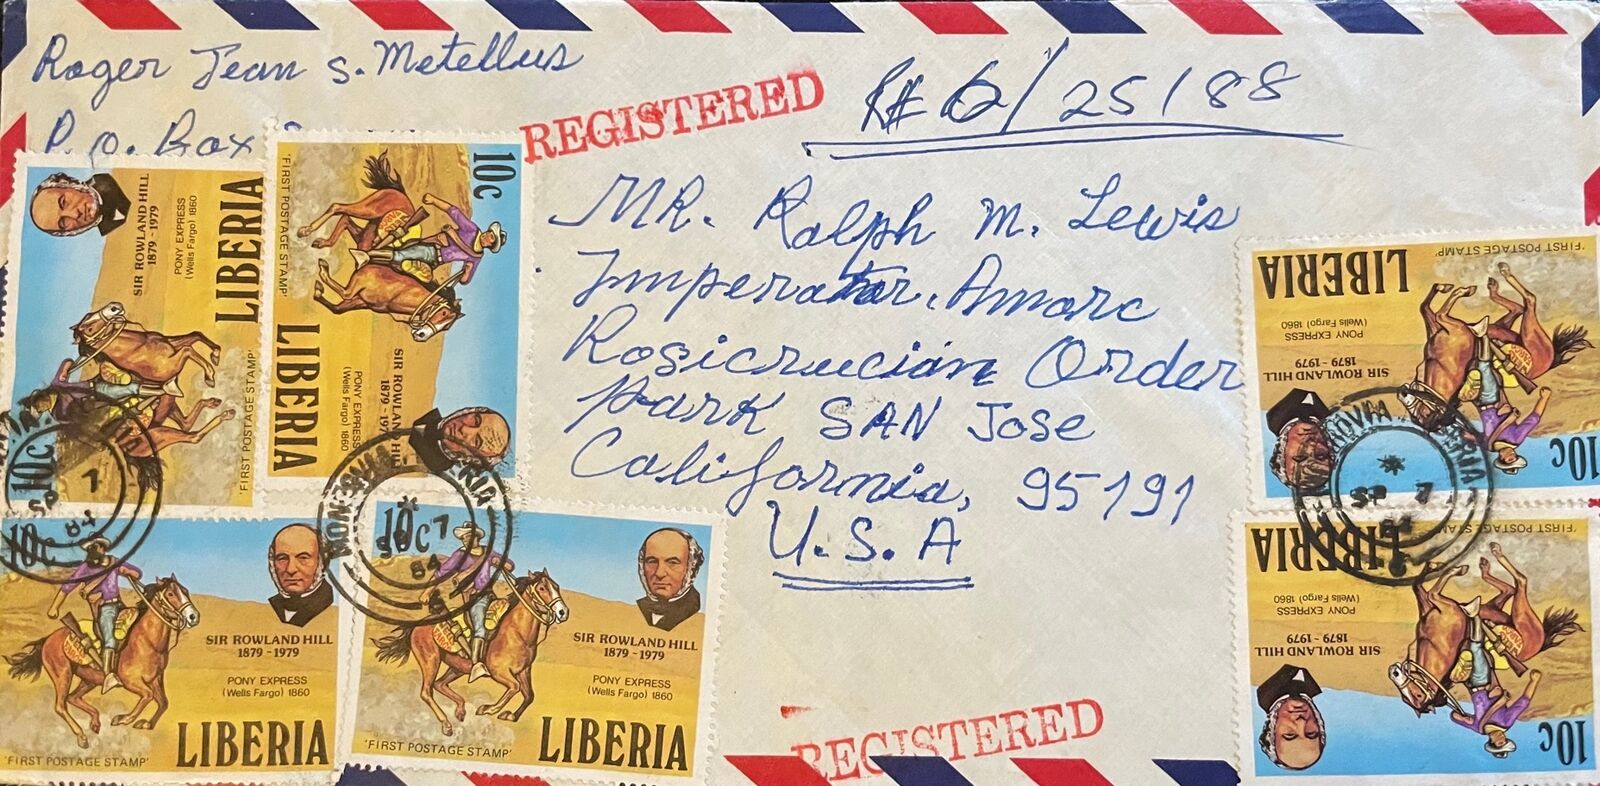 Roger Jean S. Metellus
P.O. Box
REGISTERED
R# 62/25/88
MR. Ralph M. Lewis
Imperator, Amorc
Rosicrucian Order
Park SAN Jose
California, 95191
U.S.A
REGISTERED
SIR ROWLAND HILL
1879-1979
PONY EXPRESS
(Wells Fargo) 1860
LIBERIA
'FIRST POSTAGE STAMP'
10c
10c
'FIRST POSTAGE STAMP'
LIBERIA
SIR ROWLAND HILL
1879-1979
PONY EXPRESS
(Wells Fargo) 1860
10c
SIR ROWLAND HILL
1879-1979
PONY EXPRESS
(Wells Fargo) 1860
LIBERIA
'FIRST POSTAGE STAMP'
10c
SIR ROWLAND HILL
1879-1979
PONY EXPRESS
(Wells Fargo) 1860
LIBERIA
'FIRST POSTAGE STAMP'
'FIRST POSTAGE STAMP'
LIBERIA
PONY EXPRESS
(Wells Fargo) 1860
SIR ROWLAND HILL
1879-1979
10c
'FIRST POSTAGE STAMP'
LIBERIA
PONY EXPRESS
(Wells Fargo) 1860
SIR ROWLAND HILL
1879-1979
10c
SP 7
84
MONROVIA
SP 7
84
SP 7
84